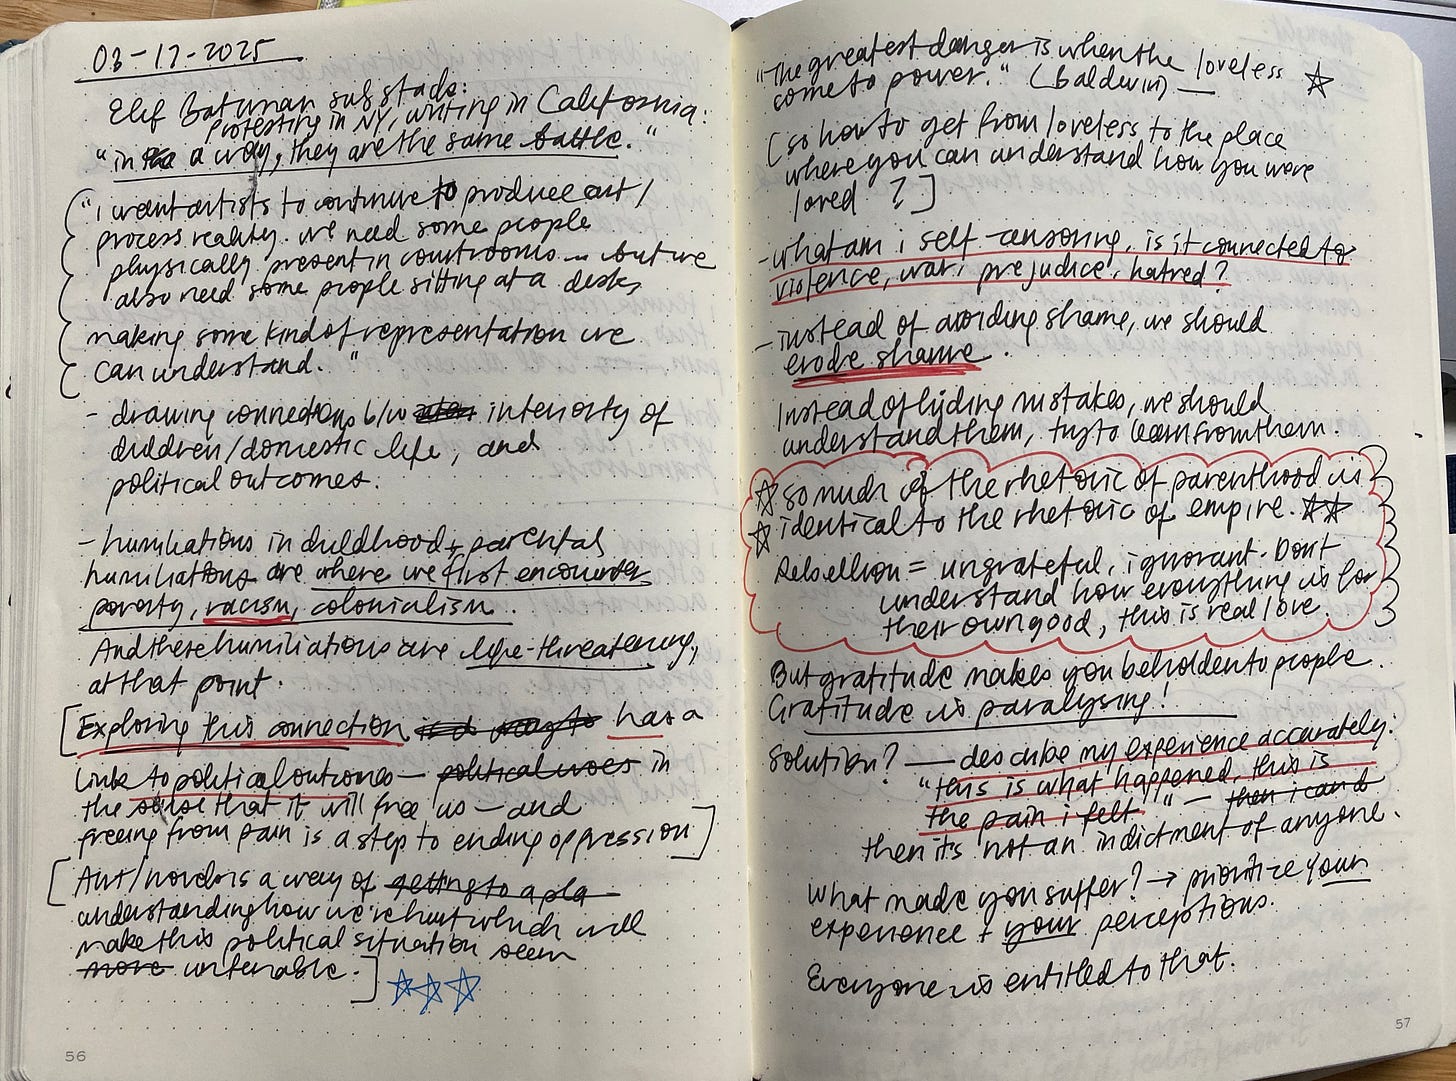 03-17-2025
Elif Batuman substack:
protesting in NY, writing in California:
"in a way, they are the same battle."
("I want artists to continue to produce art/
process reality. we need some people
physically present in courtrooms... but we
also need some people sitting at a desk,
making some kind of representation we
can understand."
- drawing connections b/w interiority of
children/domestic life, and
political outcomes.
- humiliations in childhood + parental
humiliations are where we first encounter
poverty, racism, colonialism.
And these humiliations are life-threatening,
at that point.
[Exploring this connection has a
link to political outcomes — political woes in
the sense that it will free us — and
freeing from pain is a step to ending oppression]
[Art/novels is a way of getting to a pla
understanding how we're hurt which will
make this political situation seem
more untenable.]
56
"The greatest danger is when the loveless
come to power." (Baldwin) —
[so how to get from loveless to the place
where you can understand how you were
loved?]
- what am i self-censoring, is it connected to
violence, war, prejudice, hatred?
- instead of avoiding shame, we should
erode shame.
Instead of hiding mistakes, we should
understand them, try to learn from them.
so much of the rhetoric of parenthood is
identical to the rhetoric of empire.
Rebellion = ungrateful, ignorant. Don't
understand how everything is for
their own good, this is real love.
But gratitude makes you beholden to people.
Gratitude is paralysing!
Solution? — describe my experience accurately.
"this is what happened, this is
the pain i felt" — then i can't
then it's not an indictment of anyone.
What made you suffer? → prioritize your
experience + your perceptions.
Everyone is entitled to that.
57